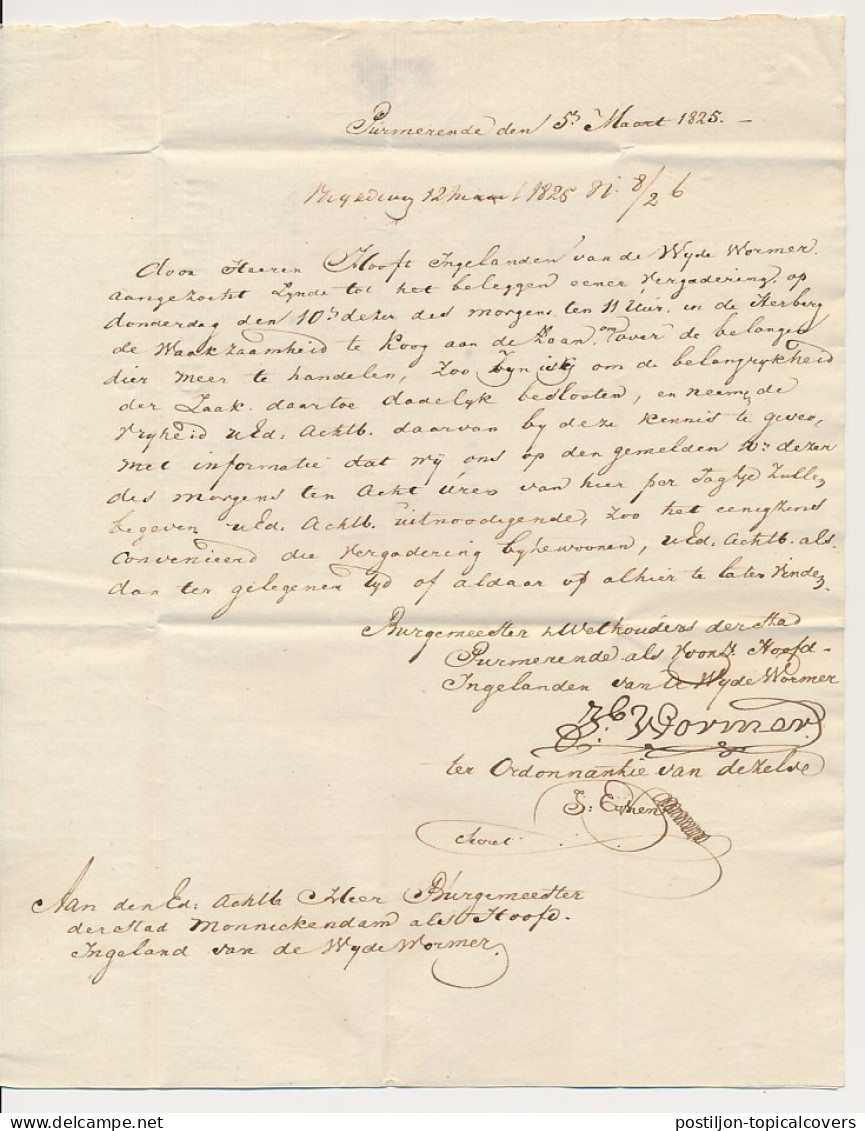 Purmerende den 5n Maart 1825. —
12 Maart 1825 N: 8/2 6
door Heeren Hooft Ingelanden van de Wyde Wormer
aangezocht Zynde tot het beleggen eener Vergadering, op
donderdag den 10n dezer des morgens ten 11 Uur, in de Herberg
de Waakzaamheid te Koog aan de Zaan, om over de belangen
dier Meer te handelen, Zoo Zyn wy om de belangrykheid
der Zaak daartoe dadelyk beslooten, en neemen de
Vryheid uEd: Achtb. daarvan by deze kennis te geven,
met informatie dat wy ons op den gemelden 10n dezer
des morgens ten Acht Uren van hier per Jagtje Zullen
begeven uEd. Achtb. uitnoodigende, Zoo het eenigzins
Convenieerd die Vergadering bytewoonen, uEd. Achtb. als
dan ter gelegenen tyd of aldaar of alhier te laten Vinden
Burgemeester & Wethouders der Stad
Purmerende als Hoofd-
Ingelanden van de Wyde Wormer
Wormer.
ter Ordonnantie van dezelve
Secret
Aan den Ed: Achtb Heer Burgemeester
der Stad Monnickendam als Hoofd-
Ingeland van de Wyde Wormer
postiljon-topicalcovers